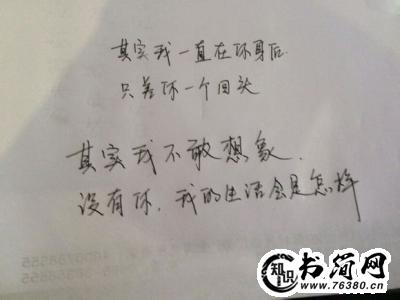 其实我一直在你身后
只差你一个回头
其实我不敢想象.
没有你.我的生活会是怎样
知识
书简网
www.76380.cn